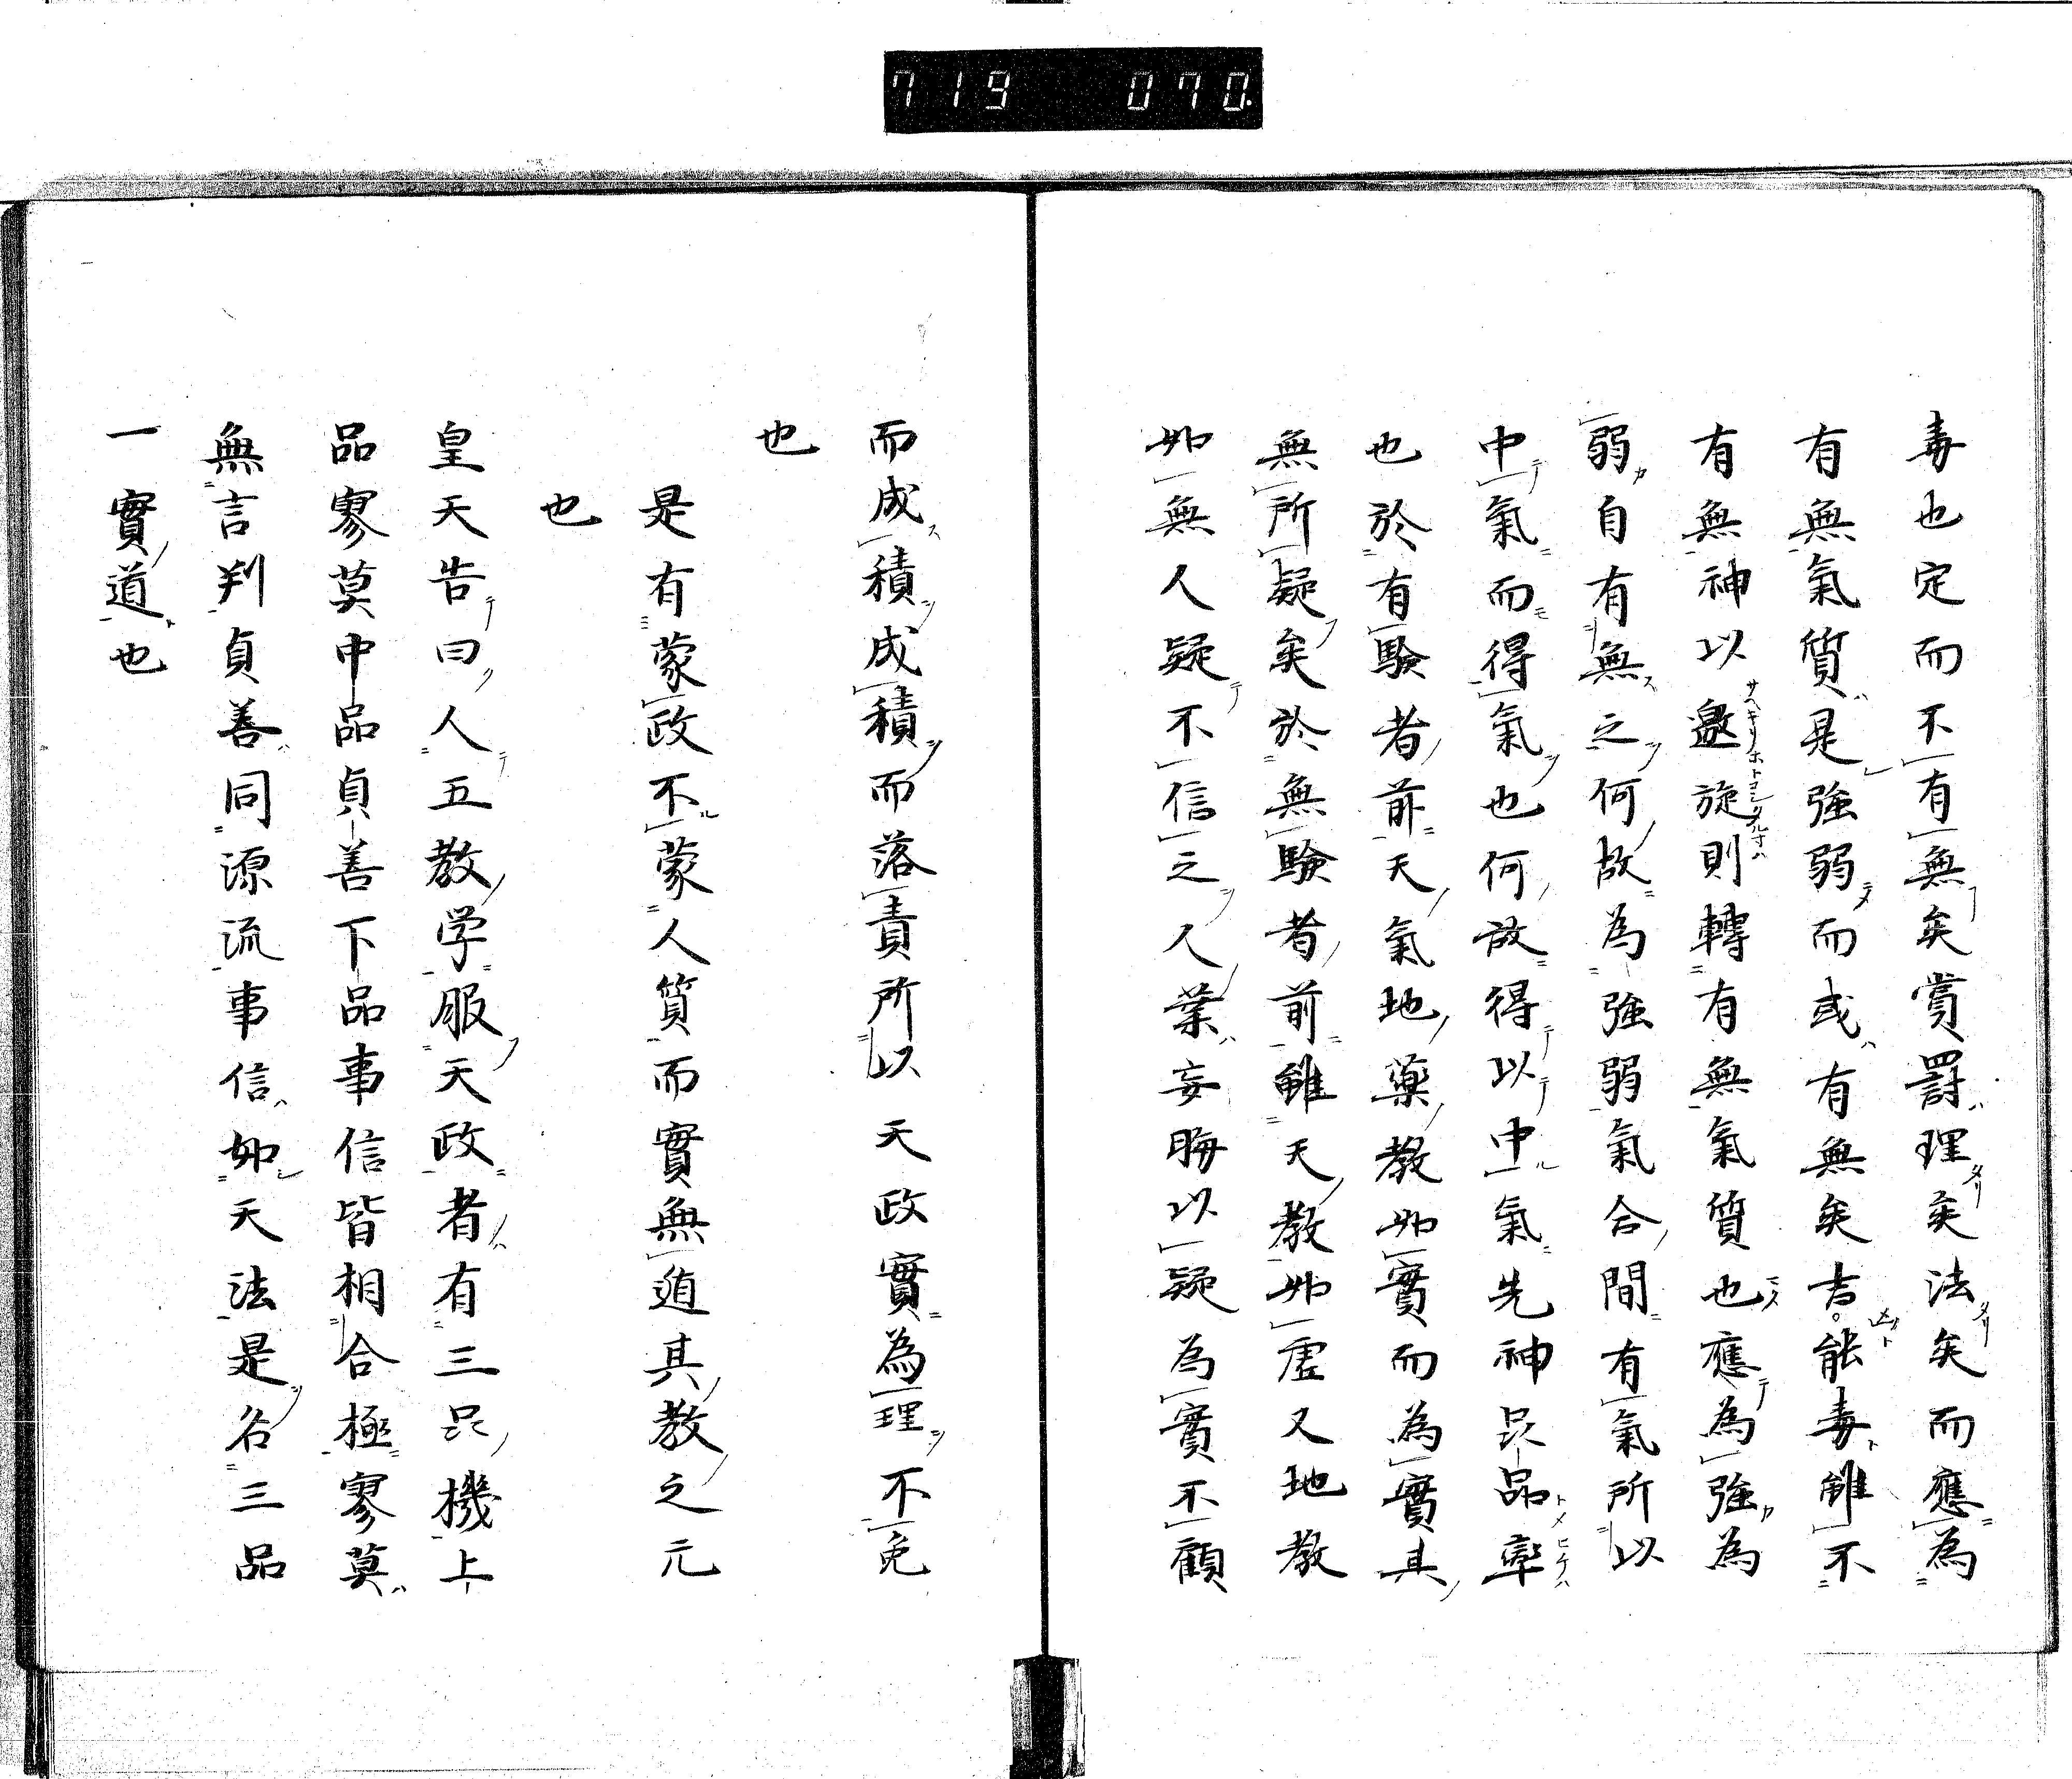 719 070.
毒也定而不有無矣賞罸理矣法矣而應為
有無氣質是強弱而或有無矣吉能毒雖不
有無神以邀旋則轉有無氣質也應為強為
弱自有無之何故為強弱氣合間有氣所以
中氣而得氣也何故得以中氣先神品率
也於有驗者前天氣地藥教如實而為實其
無所疑矣於無驗者前雖天教如虛又地教
如無人疑不信之人業妄晦以疑為實不顧
而成積成積而落責所以天政實為理不免
也
是有蒙政不蒙人質而實無道其教之元
也
皇天告曰人五教学服天政者有三機上
品寥莫中品貞善下品事信皆相合極寥莫
無言判貞善同源流事信如天法是名三品
一實道也